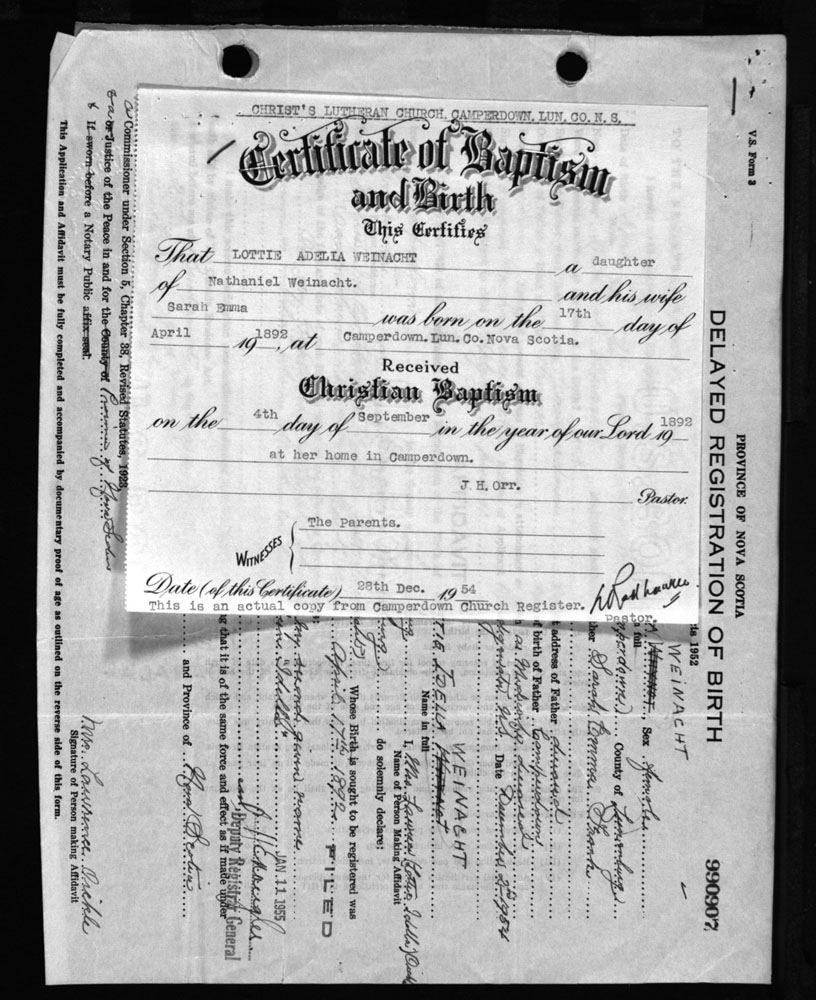 CHRIST'S LUTHERAN CHURCH, CAMPERDOWN, LUN. CO. N. S.
Certificate of Baptism
and Birth
This Certifies
That LOTTIE ADELIA WEINACHT a daughter
of Nathaniel Weinacht. and his wife
Sarah Emma was born on the 17th day of
April 19 1892, at Camperdown. Lun. Co. Nova Scotia.
Received
Christian Baptism
on the 4th day of September in the year of our Lord 19 1892
at her home in Camperdown.
J. H. Orr. Pastor.
WITNESSES { The Parents.
Date (of this Certificate) 28th Dec. 1954
This is an actual copy from Camperdown Church Register. Pastor.
V.S. Form 3
PROVINCE OF NOVA SCOTIA
DELAYED REGISTRATION OF BIRTH
990907
1952
WEINACHT
in full
Sex female
County of Lunenburg
Sarah Emma
address of Father deceased
of birth of Father Camperdown
Date December 2nd 1954
WEINACHT
Name in full
I, Mrs. Lawrence
Name of Person Making Affidavit
do solemnly declare:
Whose Birth is sought to be registered was
April 17th 1892
FILED
given name
JAN. 11 1955
Deputy Registrar General
ng that it is of the same force and effect as if made under
and Province of Nova Scotia
Mrs. Lawrence
Signature of Person making Affidavit
a Commissioner under Section 5, Chapter 38, Revised Statutes, 1923
or a Justice of the Peace in and for the County of Province of Nova Scotia
If sworn before a Notary Public affix seal.
This Application and Affidavit must be fully completed and accompanied by documentary proof of age as outlined on the reverse side of this form.